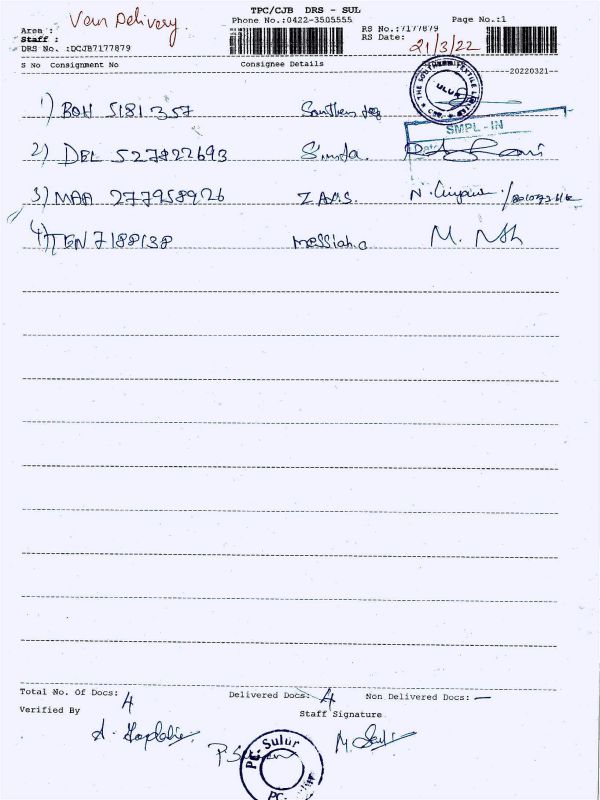 TPC/CJB DRS - SUL
Area : Van Delivery
Phone No.:0422-3505555
Page No.:1
Staff :
RS No.:7177879
DRS No. :DCJB7177879
RS Date: 21/3/22
S No Consignment No Consignee Details
20220321-
1) BOM 5181357
2) DEL 527822693
SMPL-IN
3) MAA 277958926 Z.A.A.S.
4) TEN 7188138 messiah.
M.
Total No. Of Docs: 4 Delivered Docs: 4 Non Delivered Docs: —
Verified By Staff Signature
PC-Sulur